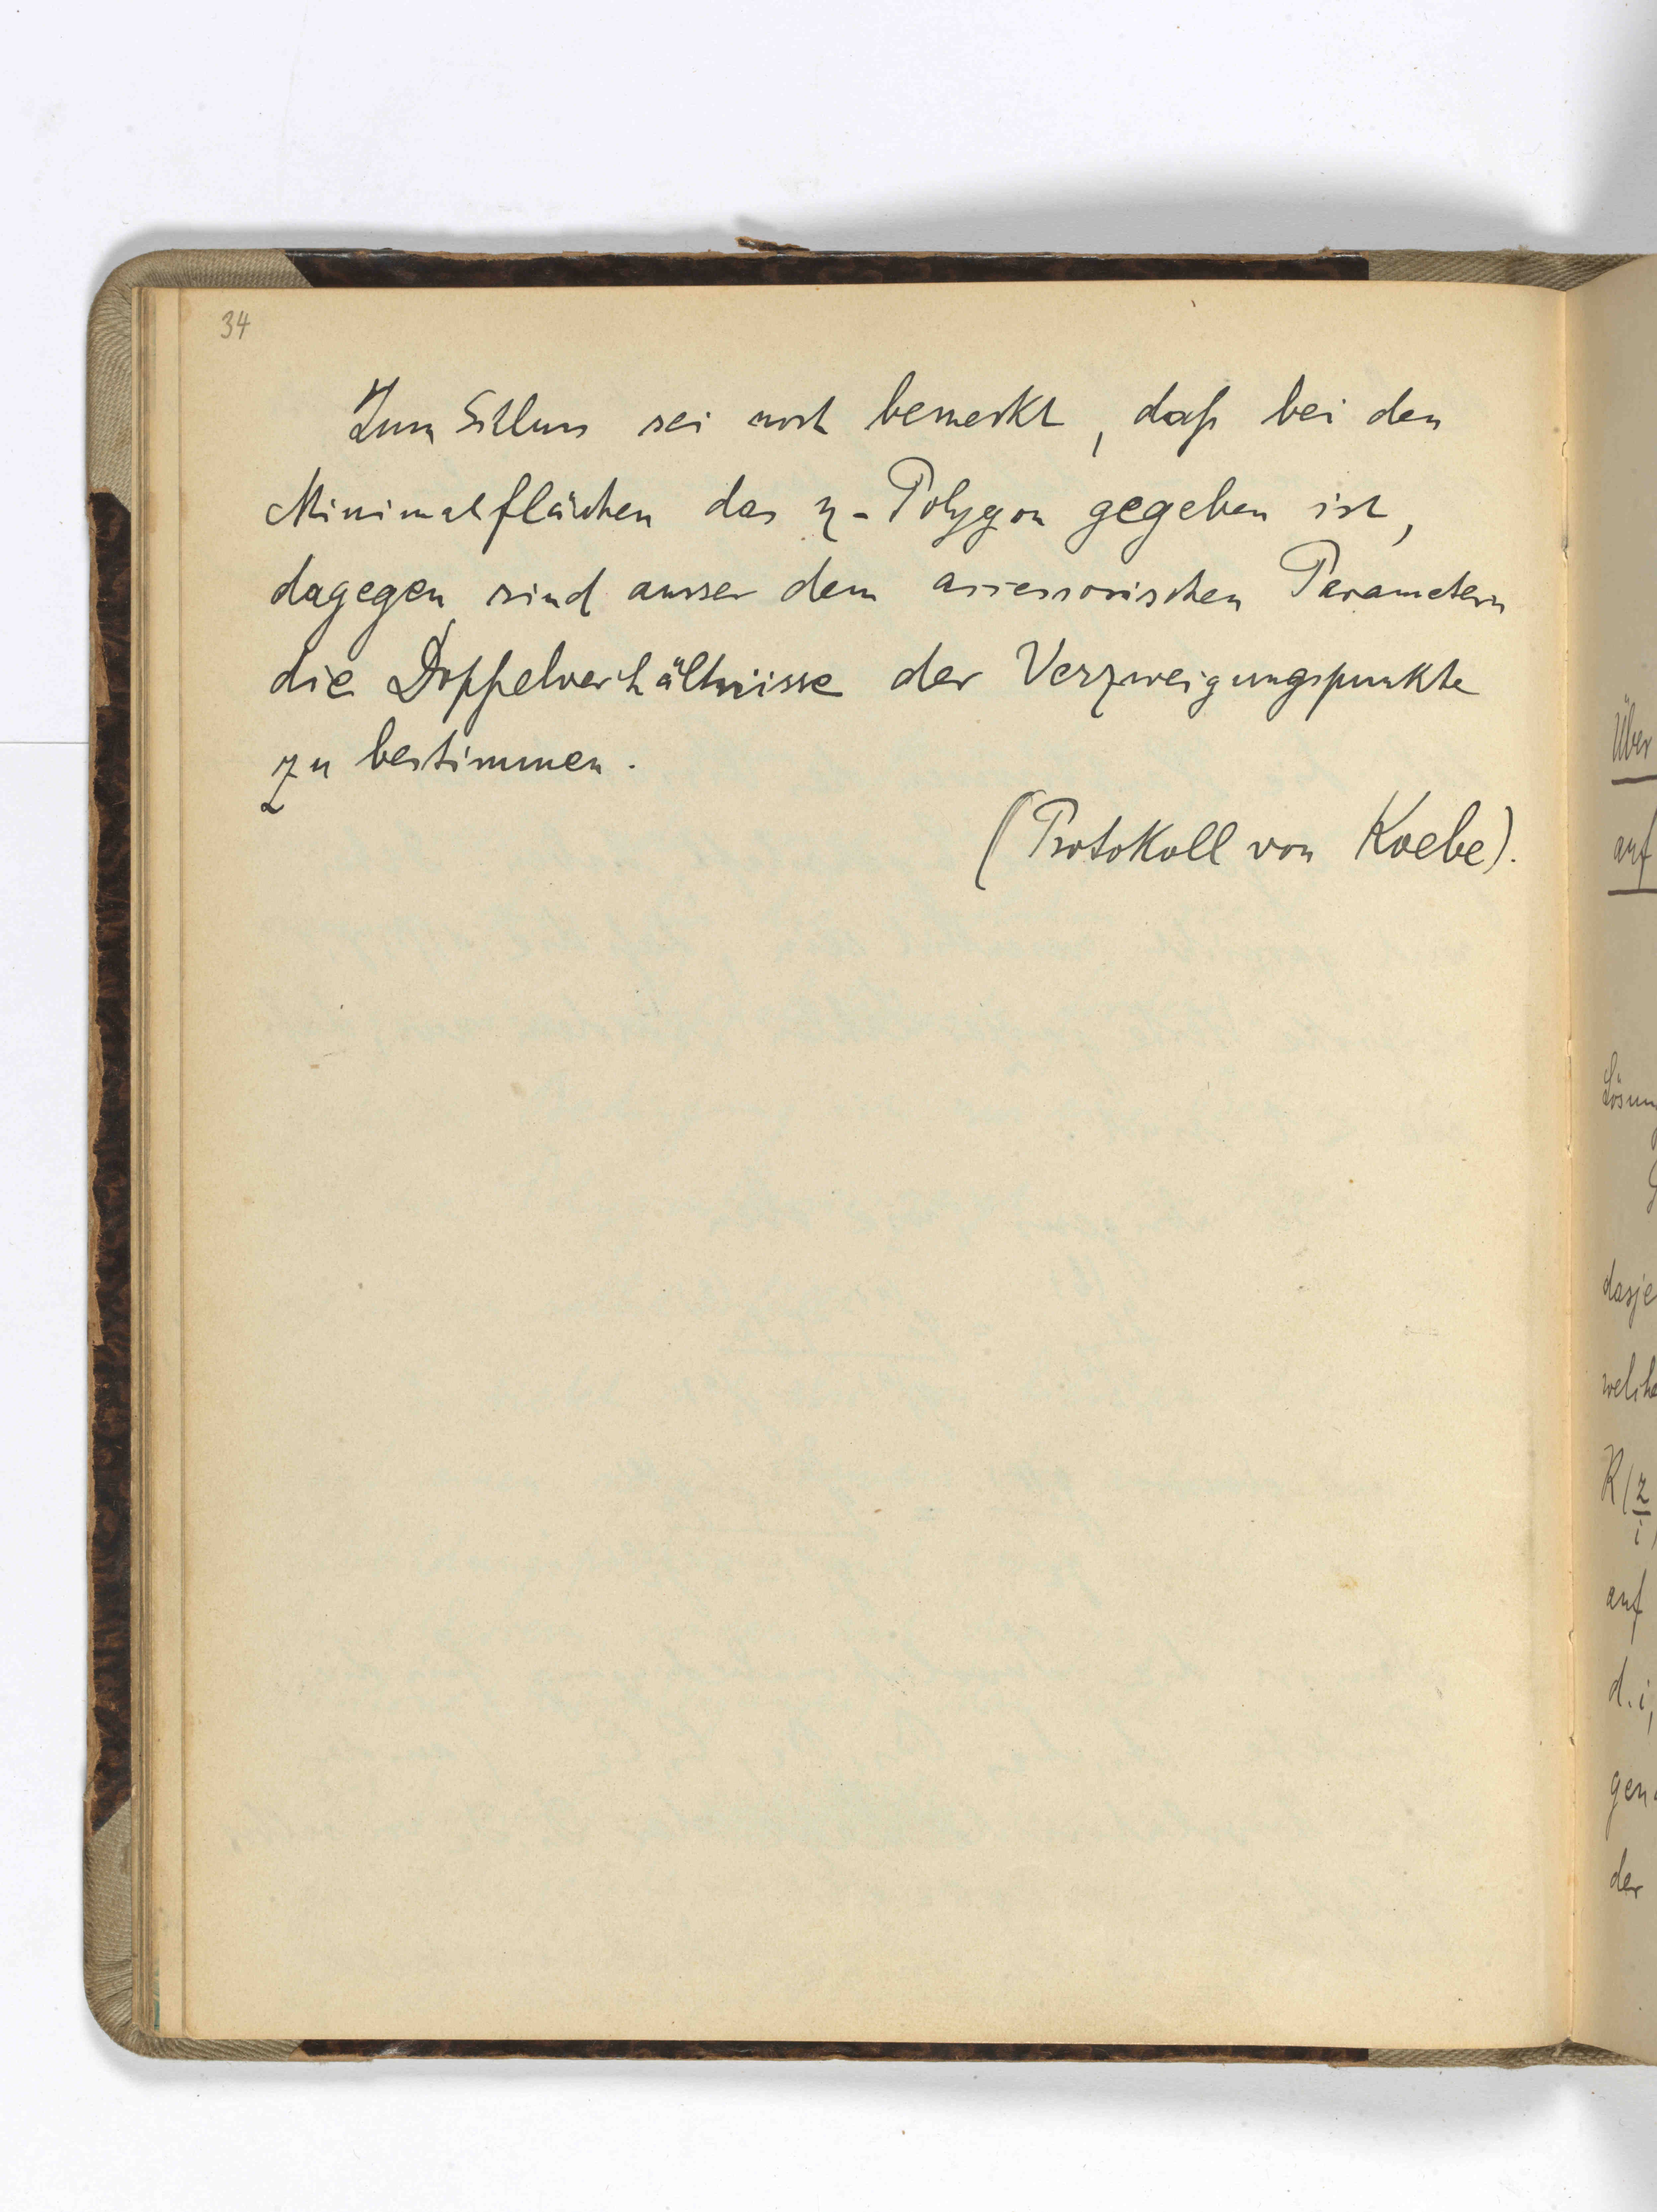 34
Zum Schluss sei noch bemerkt, daß bei den
Minimalflächen das η-Polygon gegeben ist,
dagegen sind ausser dem accessorischen Parametern
die Doppelverhältnisse der Verzweigungspunkte
zu bestimmen.
(Protokoll von Koebe).
Über
auf
Lösung
dasje
welche
R(z/i)
auf
d.i,
gen
der